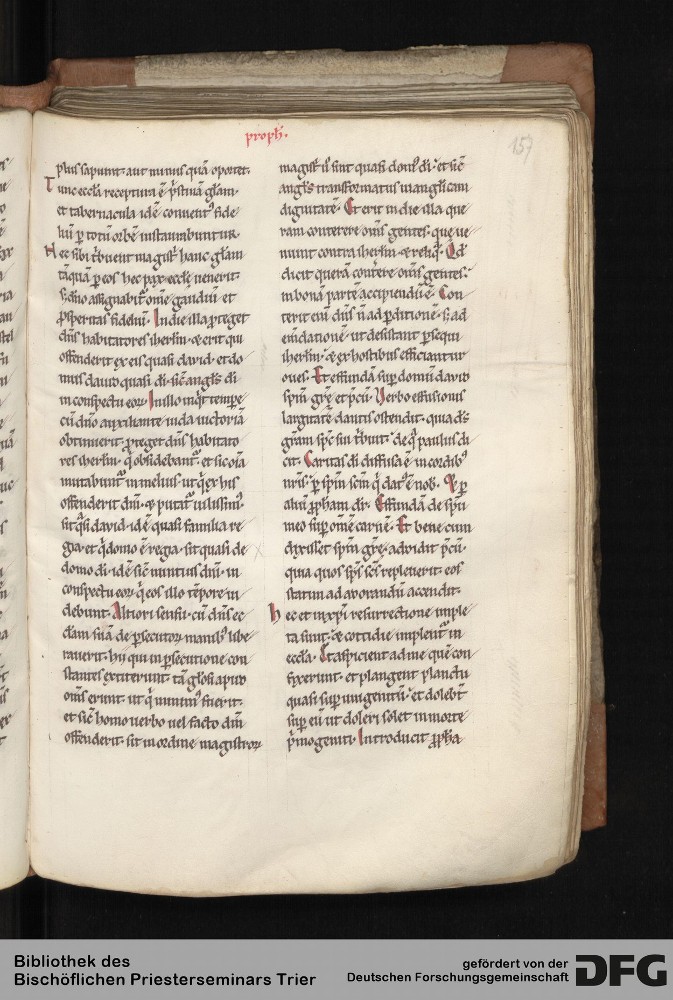 proph̄.
157
plus sapiunt. aut minus quā oportet.
Tunc eccl̄a receptura ē p̄stinā gl̄am.
et tabernacula idē conuentꝰ fide
liū ꝑ totū orbē instaurabuntur.
Nec sibi t̄buent magist̄ hanc gl̄am
tāquā ꝑ eos hec pax eccl̄e uenerit.
s; dn̄o assignabit̄ om̄e gaudiū. et
ꝓsperitas fideliū. In die illa proteget
dn̄s habitatores ihrl̄m. & erit qui
offenderit ex eis quasi dauid. et do
mus dauid quasi di. sic̄ angl̄s di
in conspectu eoꝝ. In illo inq̄t temꝑe
cū dn̄o auxiliante iuda uictoriā
obtinuerit. ꝓteget dn̄s habitato
res ihrl̄m. q̄ obsidebant̄. et sic om̄ia
mutabunt̄ in melius. ut q̄ ex his
offenderit dn̄m. & putat̄ uilissimꝰ.
sit q̄si dauid. idē quasi familia re
gia. et q̄ domꝰ ē regia. sit quasi de
domo di. idē sic̄ nuntius dn̄i. in
conspectu eoꝝ. q̄ eos illo tēpore ui
debunt. Altiori sensu. cū dn̄s ec
cl̄am suā de ꝑsecutoꝝ manibꝰ libe
rauerit. hii qui in ꝑsecutione con
stantes extiterunt. tā gl̄osi apud
om̄s erunt. ut q̄ minimꝰ fuerit.
et sic̄ homo uerbo uel facto dn̄m
offenderit. sit in ordine magistroꝝ
magist̄ ū sint quasi domꝰ di. et sic̄
angl̄s transformatus in angl̄icam
dignitatē. Et erit in die illa que
ram conterere om̄s gentes. que ue
niunt contra iherl̄m. & reliq̄. Qd̄
dicit querā cont̄ere om̄s gentes.
in bonā partē accipiendū ē. Con
terit enī dn̄s n̄ ad ꝑditionē. s; ad
em̄dationē. ut desistant ꝑsequi
iherl̄m. & ex hostibus efficiantur
oues. Et effundā suꝑ domū dauid
sp̄m gr̄e et p̄cū. Verbo effusionis
largitatē dantis ostendit. quia d̄s
gr̄am sp̄c sui t̄buit. de q̄ paulus di
cit. Caritas di diffusa ē in cordibꝰ
nr̄is. ꝑ sp̄m sc̄m q̄ datꝰ ē nob. & ꝑ
aliū ꝓph̄am dr̄. Effundā de sp̄u
meo suꝑ om̄e carnē. Et bene cum
dixisset sp̄m gr̄e. addidit p̄cū.
quia quos sp̄s sc̄s repleuerit. eos
statim ad adorandū accendit.
Hec et in xp̄i resurrectione imple
ta sunt. & cottidie implent̄ in
eccl̄a. Et aspicient ad me quē con
fixerunt. et plangent planctu
quasi suꝑ unigenitū. et dolebt̄
suꝑ eū ut doleri solet in morte
p̄mogeniti. Introducit ꝓph̄a
Bibliothek des
Bischöflichen Priesterseminars Trier
gefördert von der
Deutschen Forschungsgemeinschaft
DFG